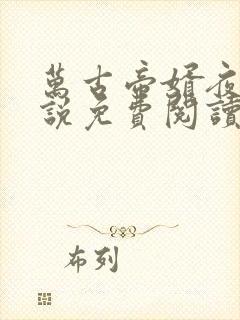 萬古帝婿夜
說免費閱讀
布列